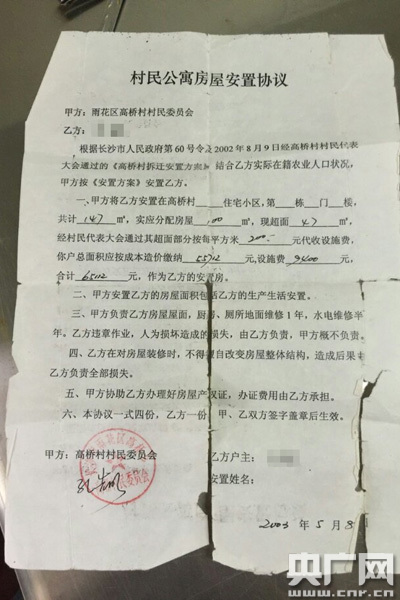 村民公寓房屋安置协议
甲方：雨花区高桥村村民委员会
乙方：
根据长沙市人民政府第60号令及2002年8月9日经高桥村村民代表
大会通过的《高桥村拆迁安置方案》结合乙方实际在籍农业人口状况，
甲方按《安置方案》安置乙方。
一、甲方将乙方安置在高桥村 住宅小区，第 栋 门 楼，
共计147㎡，实应分配房屋100㎡，现超面47㎡，
经村民代表大会通过其超面部分按每平方米200-元代收设施费，
你户总面积应按成本造价缴纳55712元,设施费9400元，
合计65112元，作为乙方的安置房。
二、甲方安置乙方的房屋面积包括乙方的生产生活安置。
三、甲方负责乙方房屋屋面，厨房、厕所地面维修1年，水电维修半
年。乙方违章作业，人为损坏造成的损失，由乙方负责，甲方概不负责。
四、乙方在对房屋装修时，不得擅自改变房屋整体结构，造成后果由
乙方负责全部损失。
五、甲方协助乙方办理好房屋产权证，办证费用由乙方承担。
六、本协议一式四份，乙方一份 甲、乙双方签字盖章后生效。
甲方：高桥村村民委员会
乙方户主：
安置姓名：
2003 年 5 月 8
央广网
www.cnr.cn